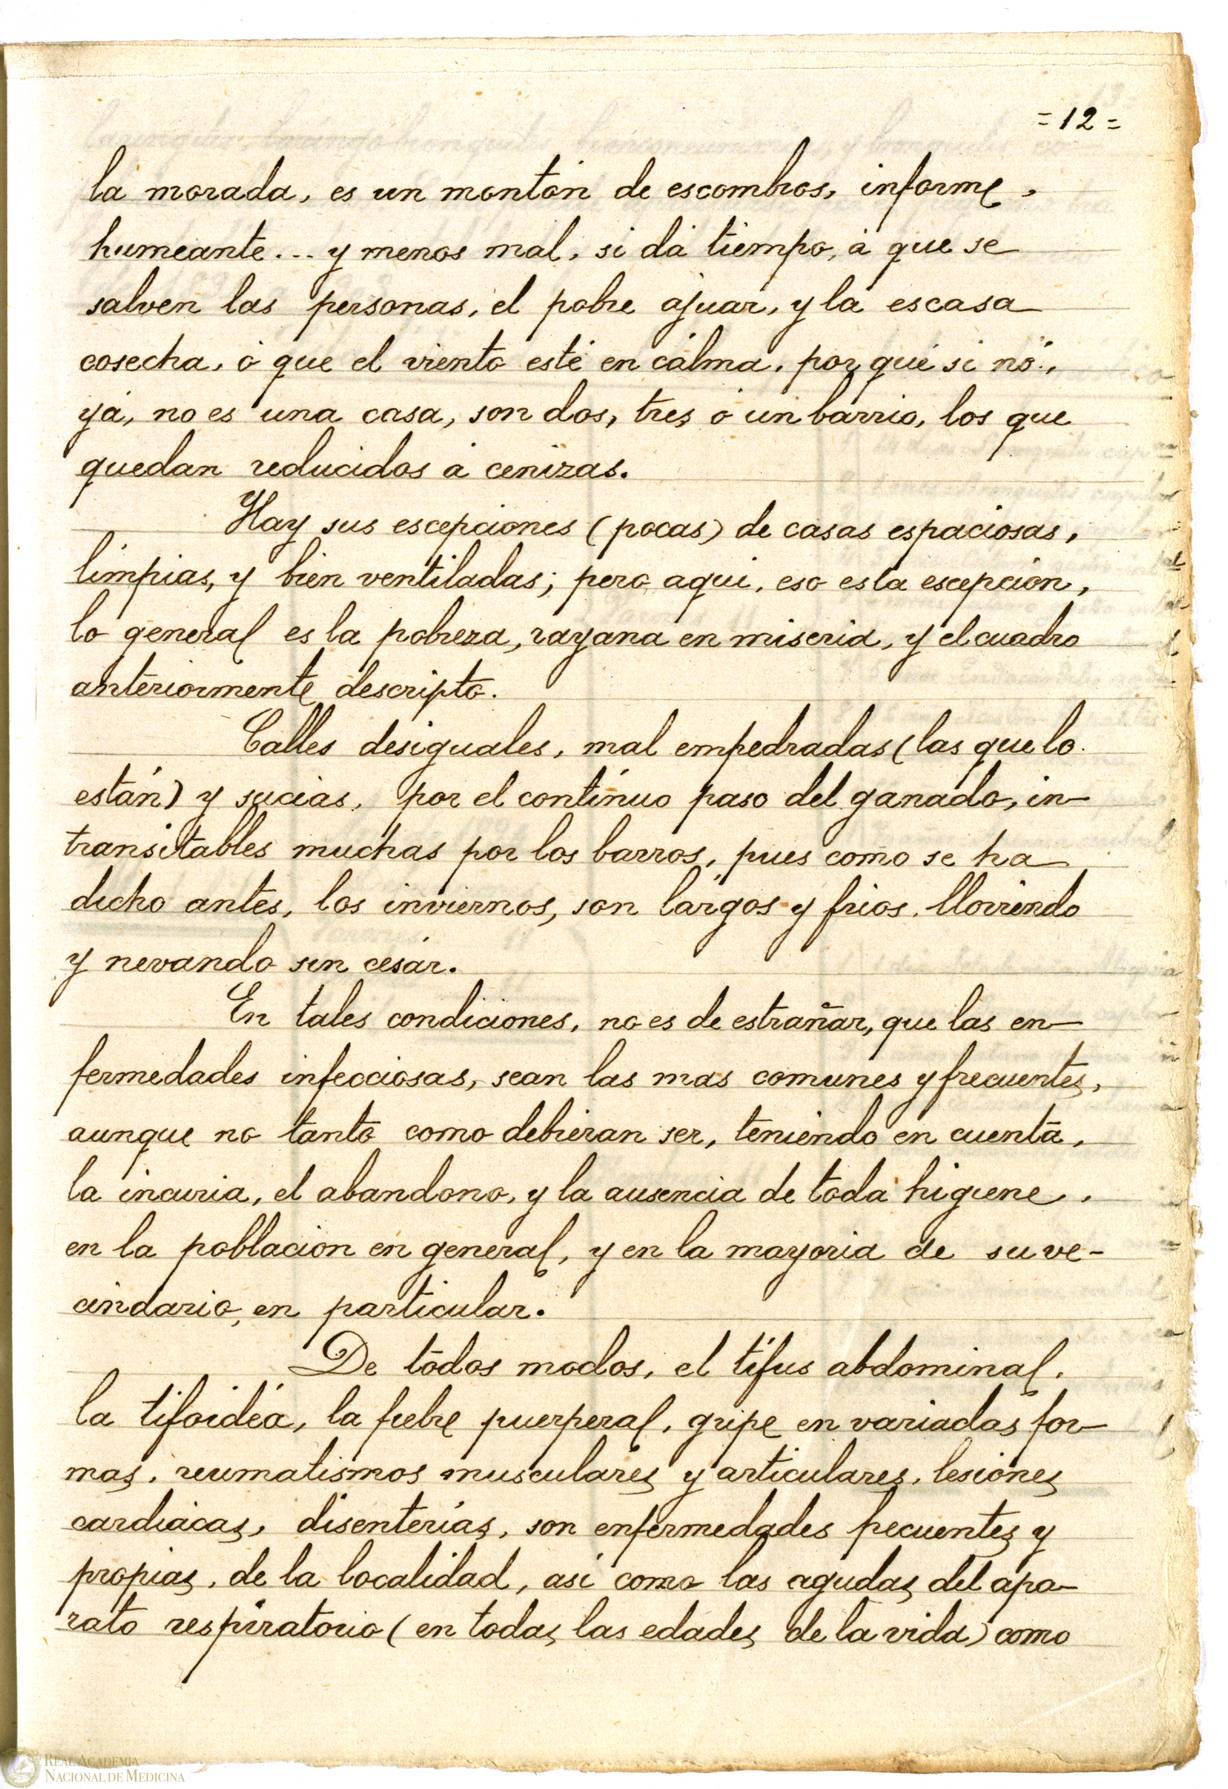 =12=
la morada, es un montón de escombros, informe,
humeante... y menos mal, si dá tiempo, á que se
salven las personas, el pobre ajuar, y la escasa
cosecha, ó que el viento esté en cálma, por qué si nó,
yá, no es una casa, son dos, tres ó un barrio, los que
quedan reducidos á cenizas.
Hay sus escepciones (pocas) de casas espaciosas,
limpias, y bien ventiladas; pero aqui, eso es la escepción,
lo general es la pobreza, rayana en miseria, y el cuadro
anteriormente descripto.
Calles desiguales, mal empedradas (las que lo
están) y sucias, por el contínuo paso del ganado, in-
transitables muchas por los barros, pues como se ha
dicho antes, los inviernos, son lárgos y frios, lloviendo
y nevando sin cesár.
En tales condiciones, no es de estrañar, que las en-
fermedades infecciosas, sean las mas comunes y frecuentes,
aunque no tanto como debieran ser, teniendo en cuenta,
la incuria, el abandono, y la ausencia de toda higiene,
en la poblacion en general, y en la mayoria de su ve-
cindario, en particular.
De todos modos, el tífus abdominal,
la tifoidéa, la fiebre puerperal, gripe en variadas for-
mas, reumatismos musculares y articulares, lesiones
cardiácas, disenterías, son enfermedades frecuentes y
propias, de la localidad, asi como las agudas del apa-
rato respiratorio (en todas las edades de la vida) como
REAL ACADEMIA
NACIONAL DE MEDICINA